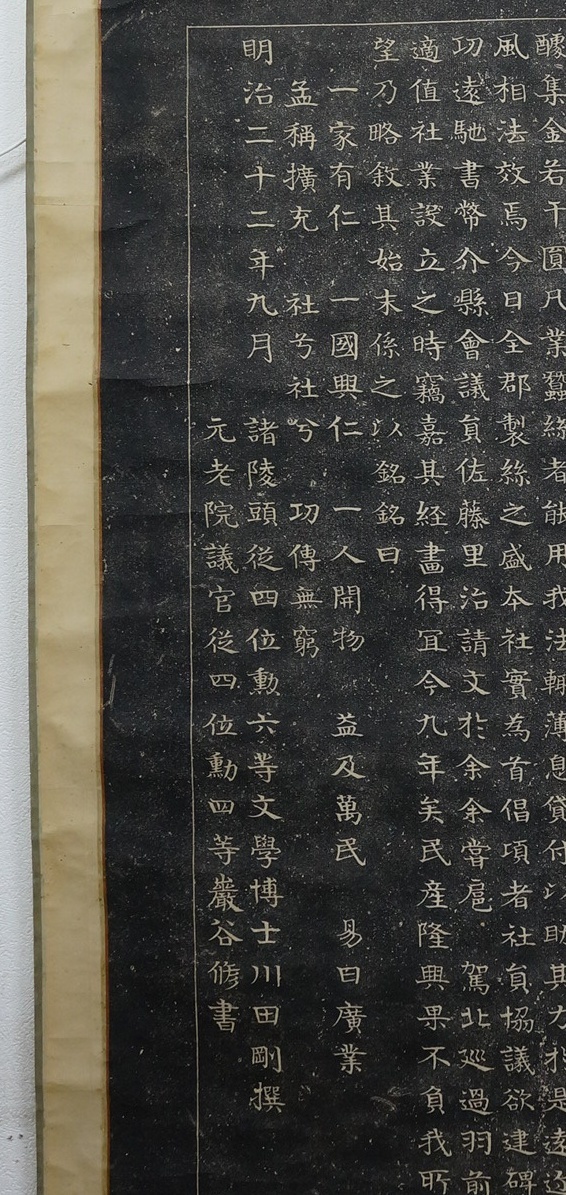 醵集金若干圓凡業蠶絲者能用我法輙薄息貸付以助其力於是遠近
風相法效焉今日全郡製絲之盛本社實為首倡項者社員協議欲建碑
功遠馳書幣介縣會議員佐藤里治請文於余余嘗扈 駕北巡過羽前
適值社業設立之時竊嘉其経畫得冝今九年矣民産隆興果不負我所
望乃略敘其始末係之以銘銘曰
一家有仁 一國興仁 一人開物 益及萬民 易曰廣業
孟稱擴充 社兮社兮 功傳無窮
明治二十二年九月 諸陵頭從四位勲六等文學博士川田剛撰
元老院議官從四位勳四等巖谷修書